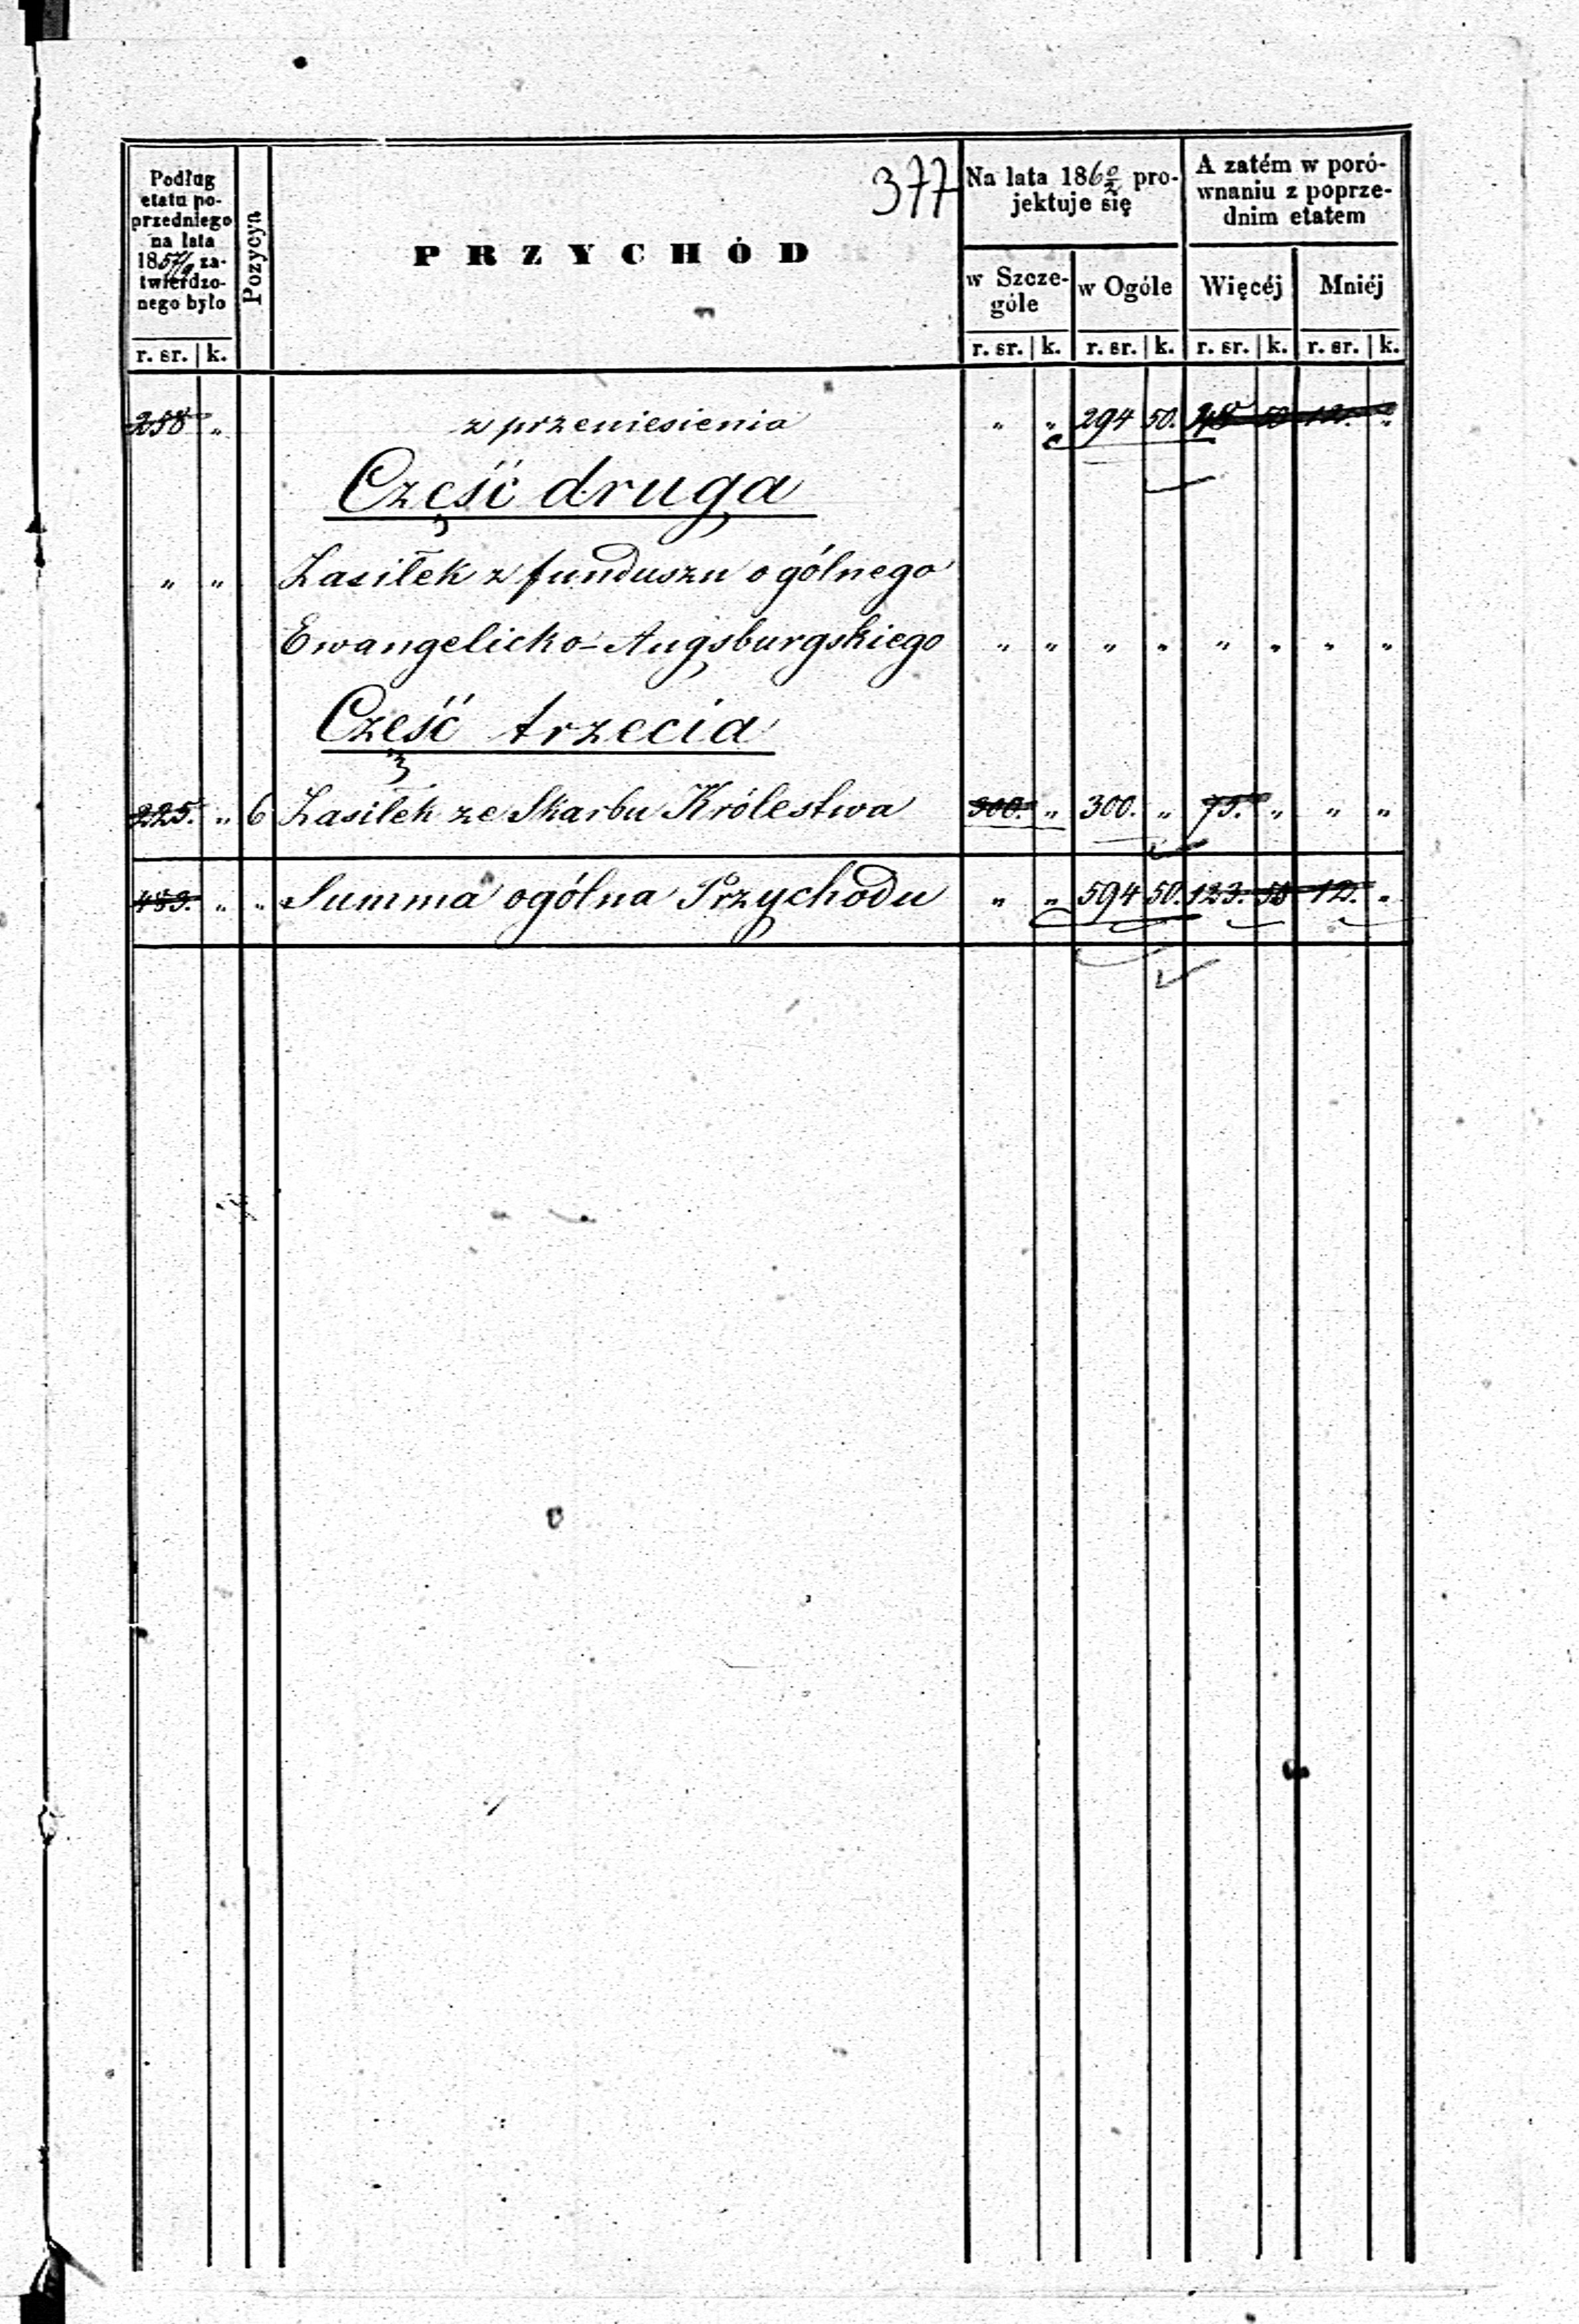 377
Podług
etatu po-
przedniego
na lata
1857/9 za-
twierdzo-
nego było
Pozycya
PRZYCHÓD
Na lata 1860/2 pro-
jektuje się
A zatém w poró-
wnaniu z poprze-
dnim etatem
w Szcze-
góle
w Ogóle
Więcéj
Mniéj
r. sr. k. r. sr. k. r. sr. k. r. sr. k. r. sr. k.
258 „ z przeniesienia „ „ 294 50. 48 50 12. „
Część druga
„ „ Zasiłek z funduszu ogólnego
Ewangelicko-Augsburgskiego „ „ „ „ „ „ „ „
Część trzecia
225. „ 6 Zasiłek ze Skarbu Królestwa 300. „ 300. „ 75. „ „ „
483. „ „ Summa ogólna Przychodu „ „ 594 50. 123. 50 12. „